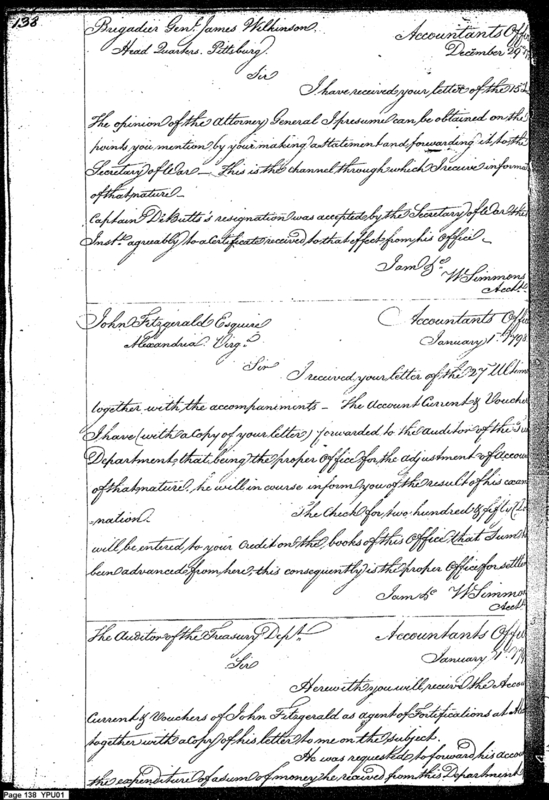 138
Brigadier Genl. James Wilkinson Accountants Offi
Head Quarters. Pittsburg December 29th 17
Sir
I have received your letter of the 15th
The opinion of the Attorney General I presume can be obtained on the
points you mention by your making a Statement and forwarding it to the
Secretary of War — This is the channel through which I receive informa
of that nature.
Captain DeButts's resignation was accepted by the Secretary of War the
Inst. agreably to a Certificate received to that effect from his Office
I am &c
Wm Simmons
Acct.
John Fitzgerald Esquire Accountants Offic
Alexandria Virga. January 1st 1798
Sir
I received your letter of the 27 Ultimo
together with the accompaniments — The Account Current & Voucher
I have (with a copy of your letter) forwarded to the Auditor of the
Department, that being the proper Office for the adjustment of Accou
of that nature. he will in course inform you of the result of his exam
nation. The Check for two hundred & fifty
will be entered to your Credit on the books of this Office that Sum
been advanced from here, this consequently is the proper Office for settle
I am &c Wm Simmons
Acct.
The Auditor of the Treasury Dept. Accountants Offic
Sir January 1st 179
Herewith you will receive the Accou
Current & Vouchers of John Fitzgerald as agent of Fortifications at Al
together with a Copy of his letter to me on the subject.
He was requested to forward his accou
the expenditure of a sum of money he received from this Department
Page 138 YPU01